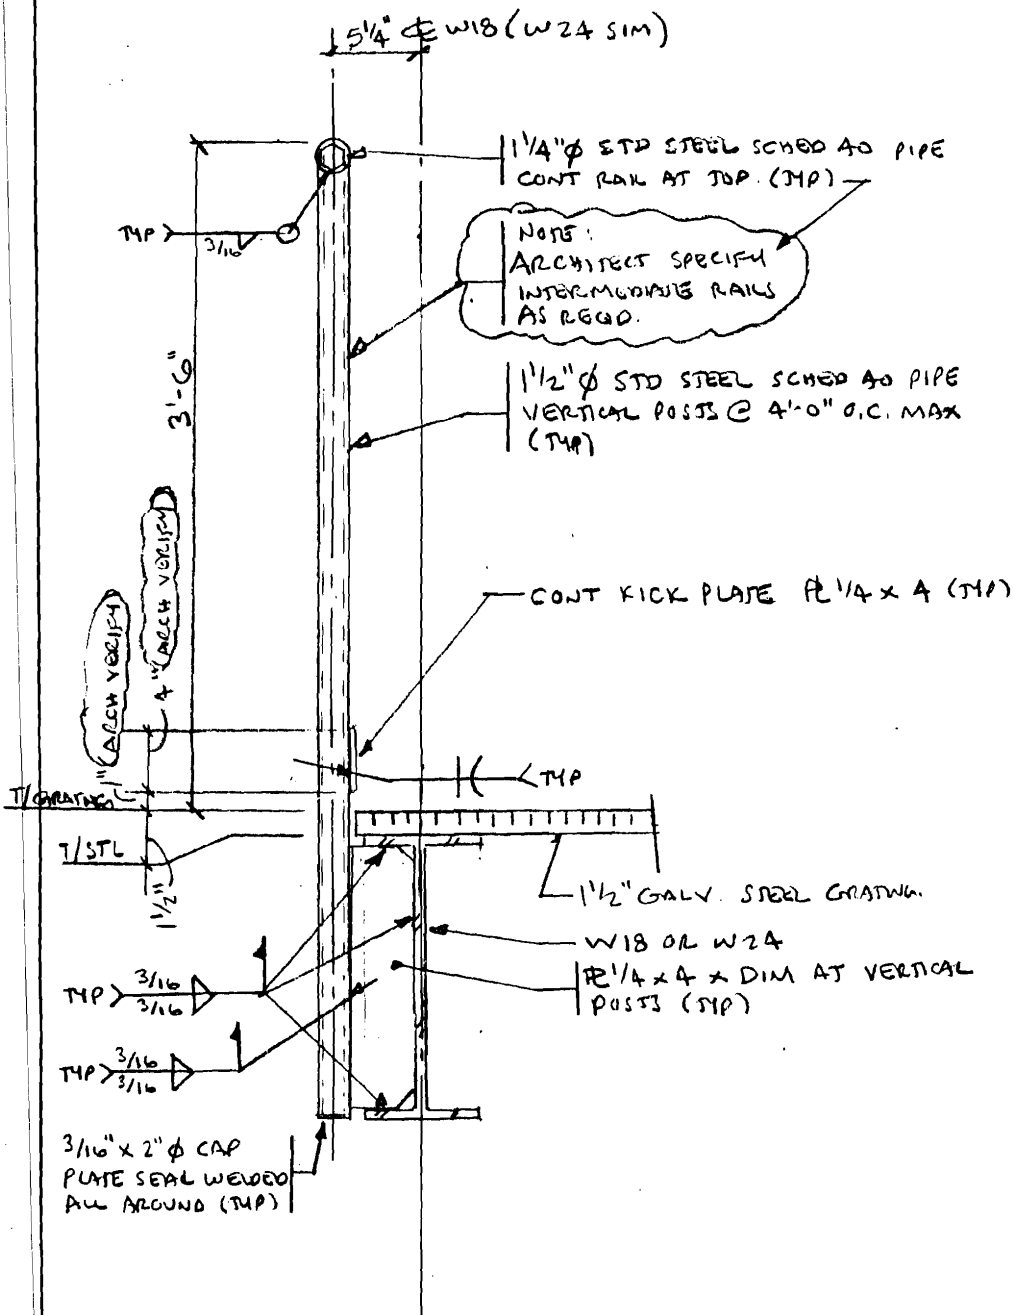 5 1/4" ℄ W18 (W24 SIM)
1 1/4"ϕ STD STEEL SCHED 40 PIPE
CONT RAIL AT TOP. (TYP)
TYP
3/16
NOTE:
ARCHITECT SPECIFY
INTERMEDIATE RAILS
AS REQD.
3'-6"
1 1/2"ϕ STD STEEL SCHED 40 PIPE
VERTICAL POSTS @ 4'-0" O.C. MAX
(TYP)
4" (ARCH VERIFY)
1" (ARCH VERIFY)
CONT KICK PLATE ⅊ 1/4 x 4 (TYP)
TYP
T/GRATING
T/STL
1 1/2"
1 1/2" GALV. STEEL GRATING.
W18 OR W24
⅊ 1/4 x 4 x DIM AT VERTICAL
POSTS (TYP)
TYP 3/16
3/16
TYP 3/16
3/16
3/16" x 2"ϕ CAP
PLATE SEAL WELDED
ALL AROUND (TYP)